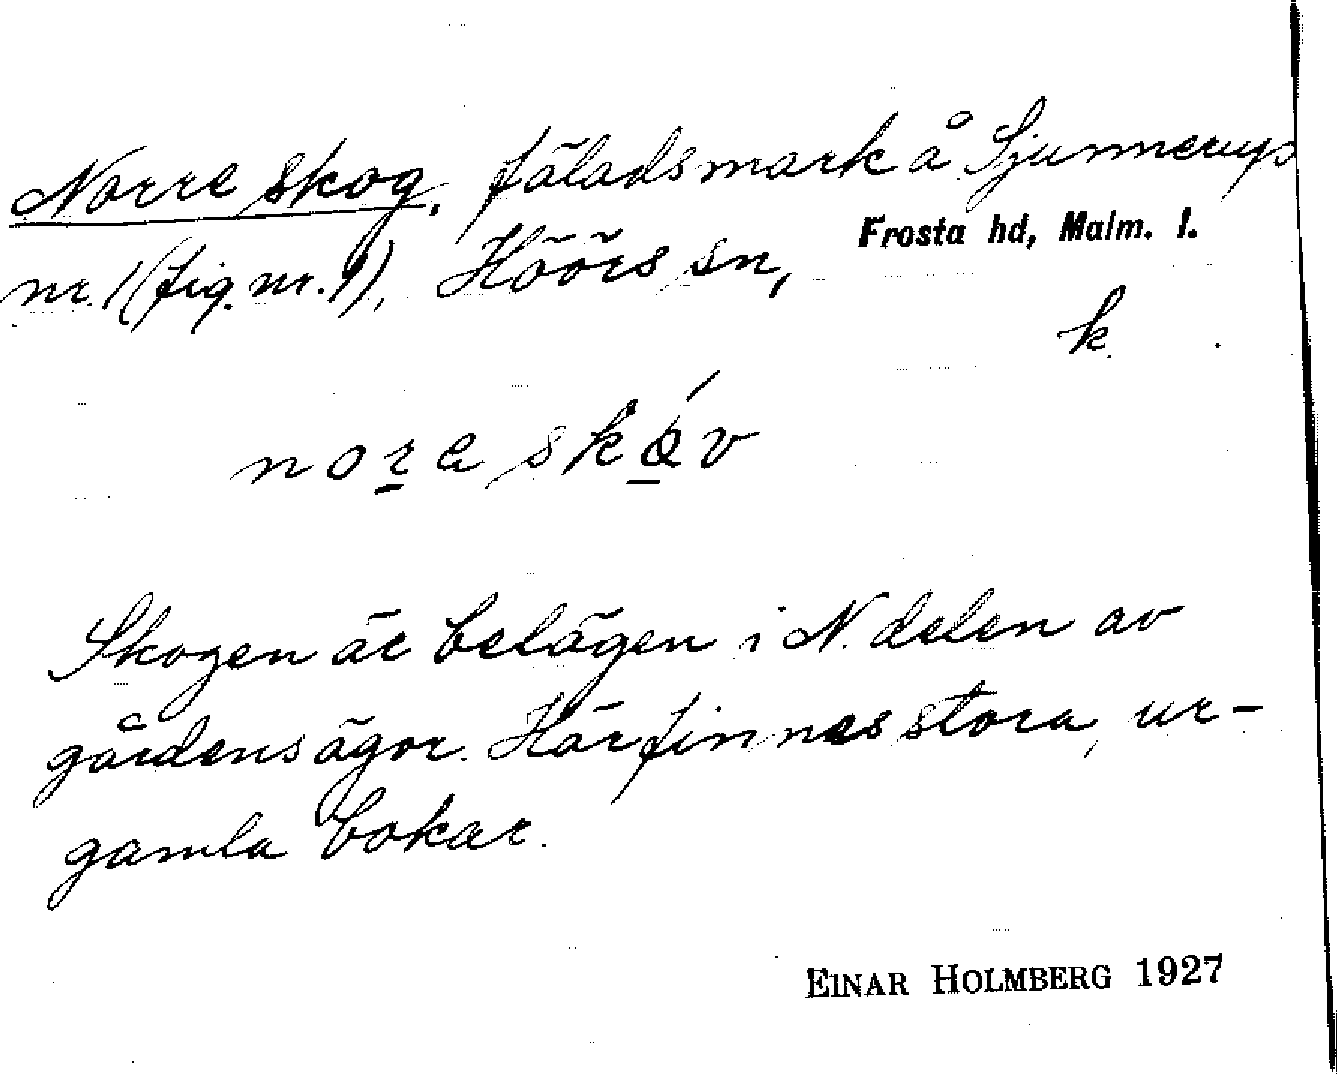 Norre skog, fäladsmark å Sjunnerups
nr. 1 (fig. nr. 1), Höörs sn, Frosta hd, Malm. l.
k.
nore skóv
Skogen är belägen i N. delen av
gårdens ägor. Här finnes stora, ur-
gamla bokar.
EINAR HOLMBERG 1927